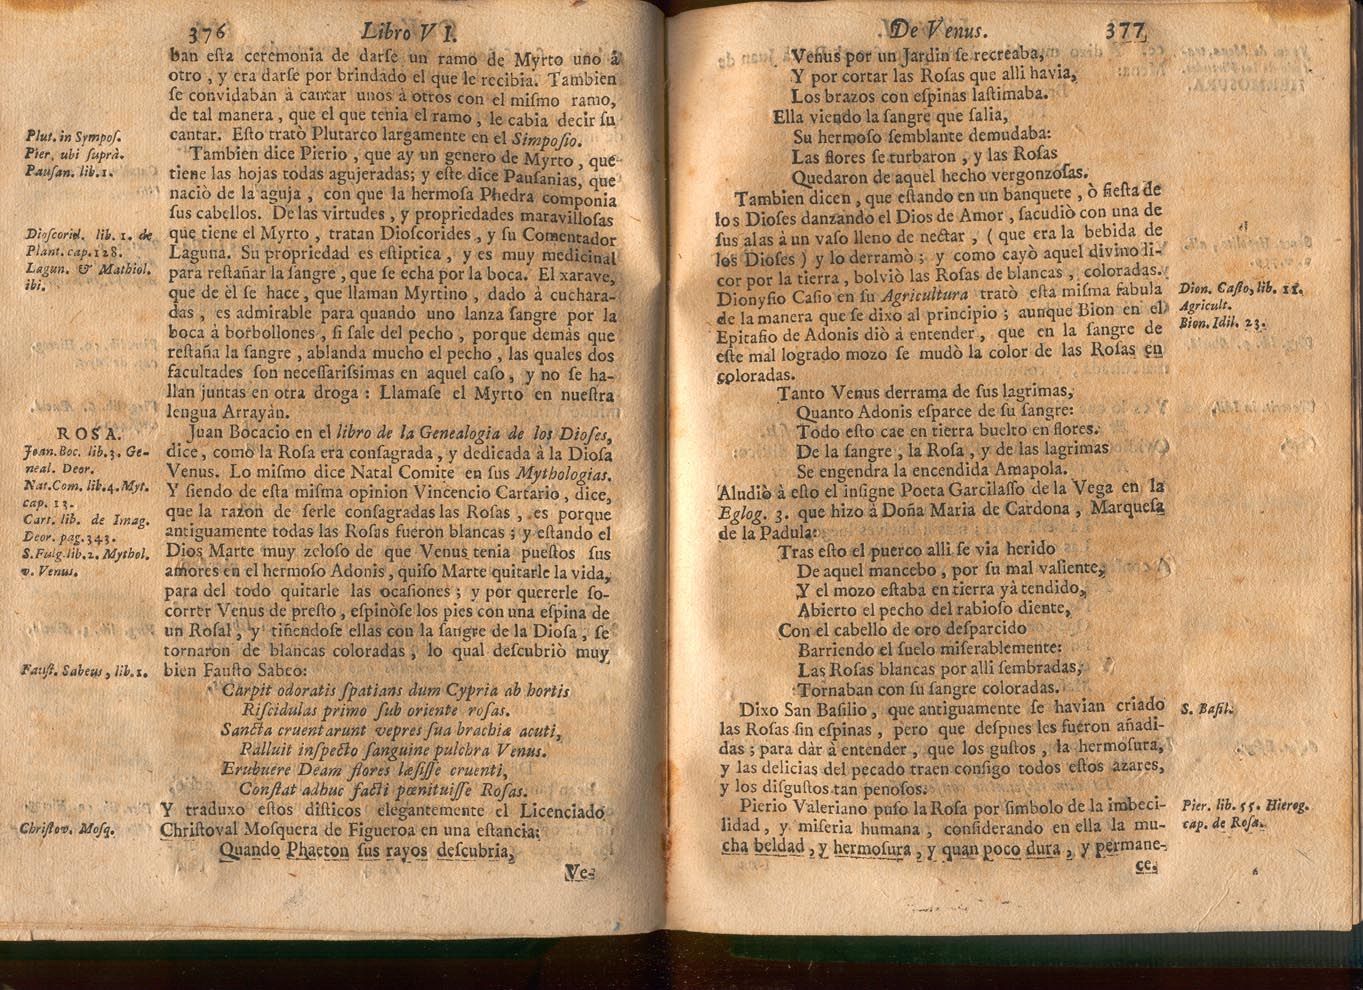 376 Libro VI.
ban esta ceremonia de darse un ramo de Myrto uno à
otro, y era darse por brindado el que le recibia. Tambien
se convidaban à cantar unos à otros con el mismo ramo,
de tal manera, que el que tenia el ramo, le cabia decir su
cantar. Esto tratò Plutarco largamente en el Simposio.
Plut. in Sympos.
Pier. ubi suprà.
Pausan. lib. 1.
Tambien dice Pierio, que ay un genero de Myrto, que
tiene las hojas todas agujeradas; y este dice Pausanias, que
naciò de la aguja, con que la hermosa Phedra componia
sus cabellos. De las virtudes, y propriedades maravillosas
que tiene el Myrto, tratan Dioscorides, y su Comentador
Laguna. Su propriedad es estiptica, y es muy medicinal
para restañar la sangre, que se echa por la boca. El xarave,
que de èl se hace, que llaman Myrtino, dado à cuchara-
das, es admirable para quando uno lanza sangre por la
boca à borbollones, si sale del pecho, porque demàs que
restaña la sangre, ablanda mucho el pecho, las quales dos
facultades son necessarissimas en aquel caso, y no se ha-
llan juntas en otra droga: Llamase el Myrto en nuestra
lengua Arrayàn.
Dioscorid. lib. 1. de
Plant. cap. 128.
Lagun. & Mathiol.
ibi.
ROSA.
Joan. Boc. lib. 3. Ge-
neal. Deor.
Nat. Com. lib. 4. Myt.
cap. 13.
Cart. lib. de Imag.
Deor. pag. 343.
S. Fulg. lib. 2. Mythol.
v. Venus.
Juan Bocacio en el libro de la Genealogia de los Dioses,
dice, como la Rosa era consagrada, y dedicada à la Diosa
Venus. Lo mismo dice Natal Comite en sus Mythologias.
Y siendo de esta misma opinion Vincencio Cartario, dice,
que la razon de serle consagradas las Rosas, es porque
antiguamente todas las Rosas fueron blancas; y estando el
Dios Marte muy zeloso de que Venus tenia puestos sus
amores en el hermoso Adonis, quiso Marte quitarle la vida,
para del todo quitarle las ocasiones; y por quererle so-
correr Venus de presto, espinòse los pies con una espina de
un Rosal, y tiñendose ellas con la sangre de la Diosa, se
tornaron de blancas coloradas, lo qual descubriò muy
bien Fausto Sabeo:
Faust. Sabeus, lib. 1.
Carpit odoratis spatians dum Cypria ab hortis
Riscidulas primo sub oriente rosas.
Sancta cruentarunt vepres sua brachia acuti,
Palluit inspecto sanguine pulchra Venus.
Erubuere Deam flores læsisse cruenti,
Constat adhuc facti pœnituisse Rosas.
Y traduxo estos disticos elegantemente el Licenciado
Christoval Mosquera de Figueroa en una estancia:
Christov. Mosq.
Quando Phaeton sus rayos descubria,
Ve-
De Venus. 377
Venus por un Jardin se recreaba,
Y por cortar las Rosas que alli havia,
Los brazos con espinas lastimaba.
Ella viendo la sangre que salia,
Su hermoso semblante demudaba:
Las flores se turbaron, y las Rosas
Quedaron de aquel hecho vergonzosas.
Tambien dicen, que estando en un banquete, ò fiesta de
los Dioses danzando el Dios de Amor, sacudiò con una de
sus alas à un vaso lleno de nectar, (que era la bebida de
los Dioses) y lo derramò; y como cayò aquel divino li-
cor por la tierra, bolviò las Rosas de blancas, coloradas.
Dionysio Casio en su Agricultura tratò esta misma fabula
de la manera que se dixo al principio; aunque Bion en el
Epitafio de Adonis diò à entender, que en la sangre de
este mal logrado mozo se mudò la color de las Rosas en
coloradas.
Dion. Casio, lib. 11.
Agricult.
Bion. Idil. 23.
Tanto Venus derrama de sus lagrimas,
Quanto Adonis esparce de su sangre:
Todo esto cae en tierra buelto en flores.
De la sangre, la Rosa, y de las lagrimas
Se engendra la encendida Amapola.
Aludiò à esto el insigne Poeta Garcilasso de la Vega en la
Eglog. 3. que hizo à Doña Maria de Cardona, Marquesa
de la Padula:
Tras esto el puerco alli se via herido
De aquel mancebo, por su mal valiente,
Y el mozo estaba en tierra yà tendido,
Abierto el pecho del rabioso diente,
Con el cabello de oro desparcido
Barriendo el suelo miserablemente:
Las Rosas blancas por alli sembradas,
Tornaban con su sangre coloradas.
Dixo San Basilio, que antiguamente se havian criado
las Rosas sin espinas, pero que despues les fueron añadi-
das; para dàr à entender, que los gustos, la hermosura,
y las delicias del pecado traen consigo todos estos azares,
y los disgustos tan penosos.
S. Basil.
Pierio Valeriano puso la Rosa por simbolo de la imbeci-
lidad, y miseria humana, considerando en ella la mu-
cha beldad, y hermosura, y quan poco dura, y permane-
Pier. lib. 55. Hierog.
cap. de Rosa.
ce.